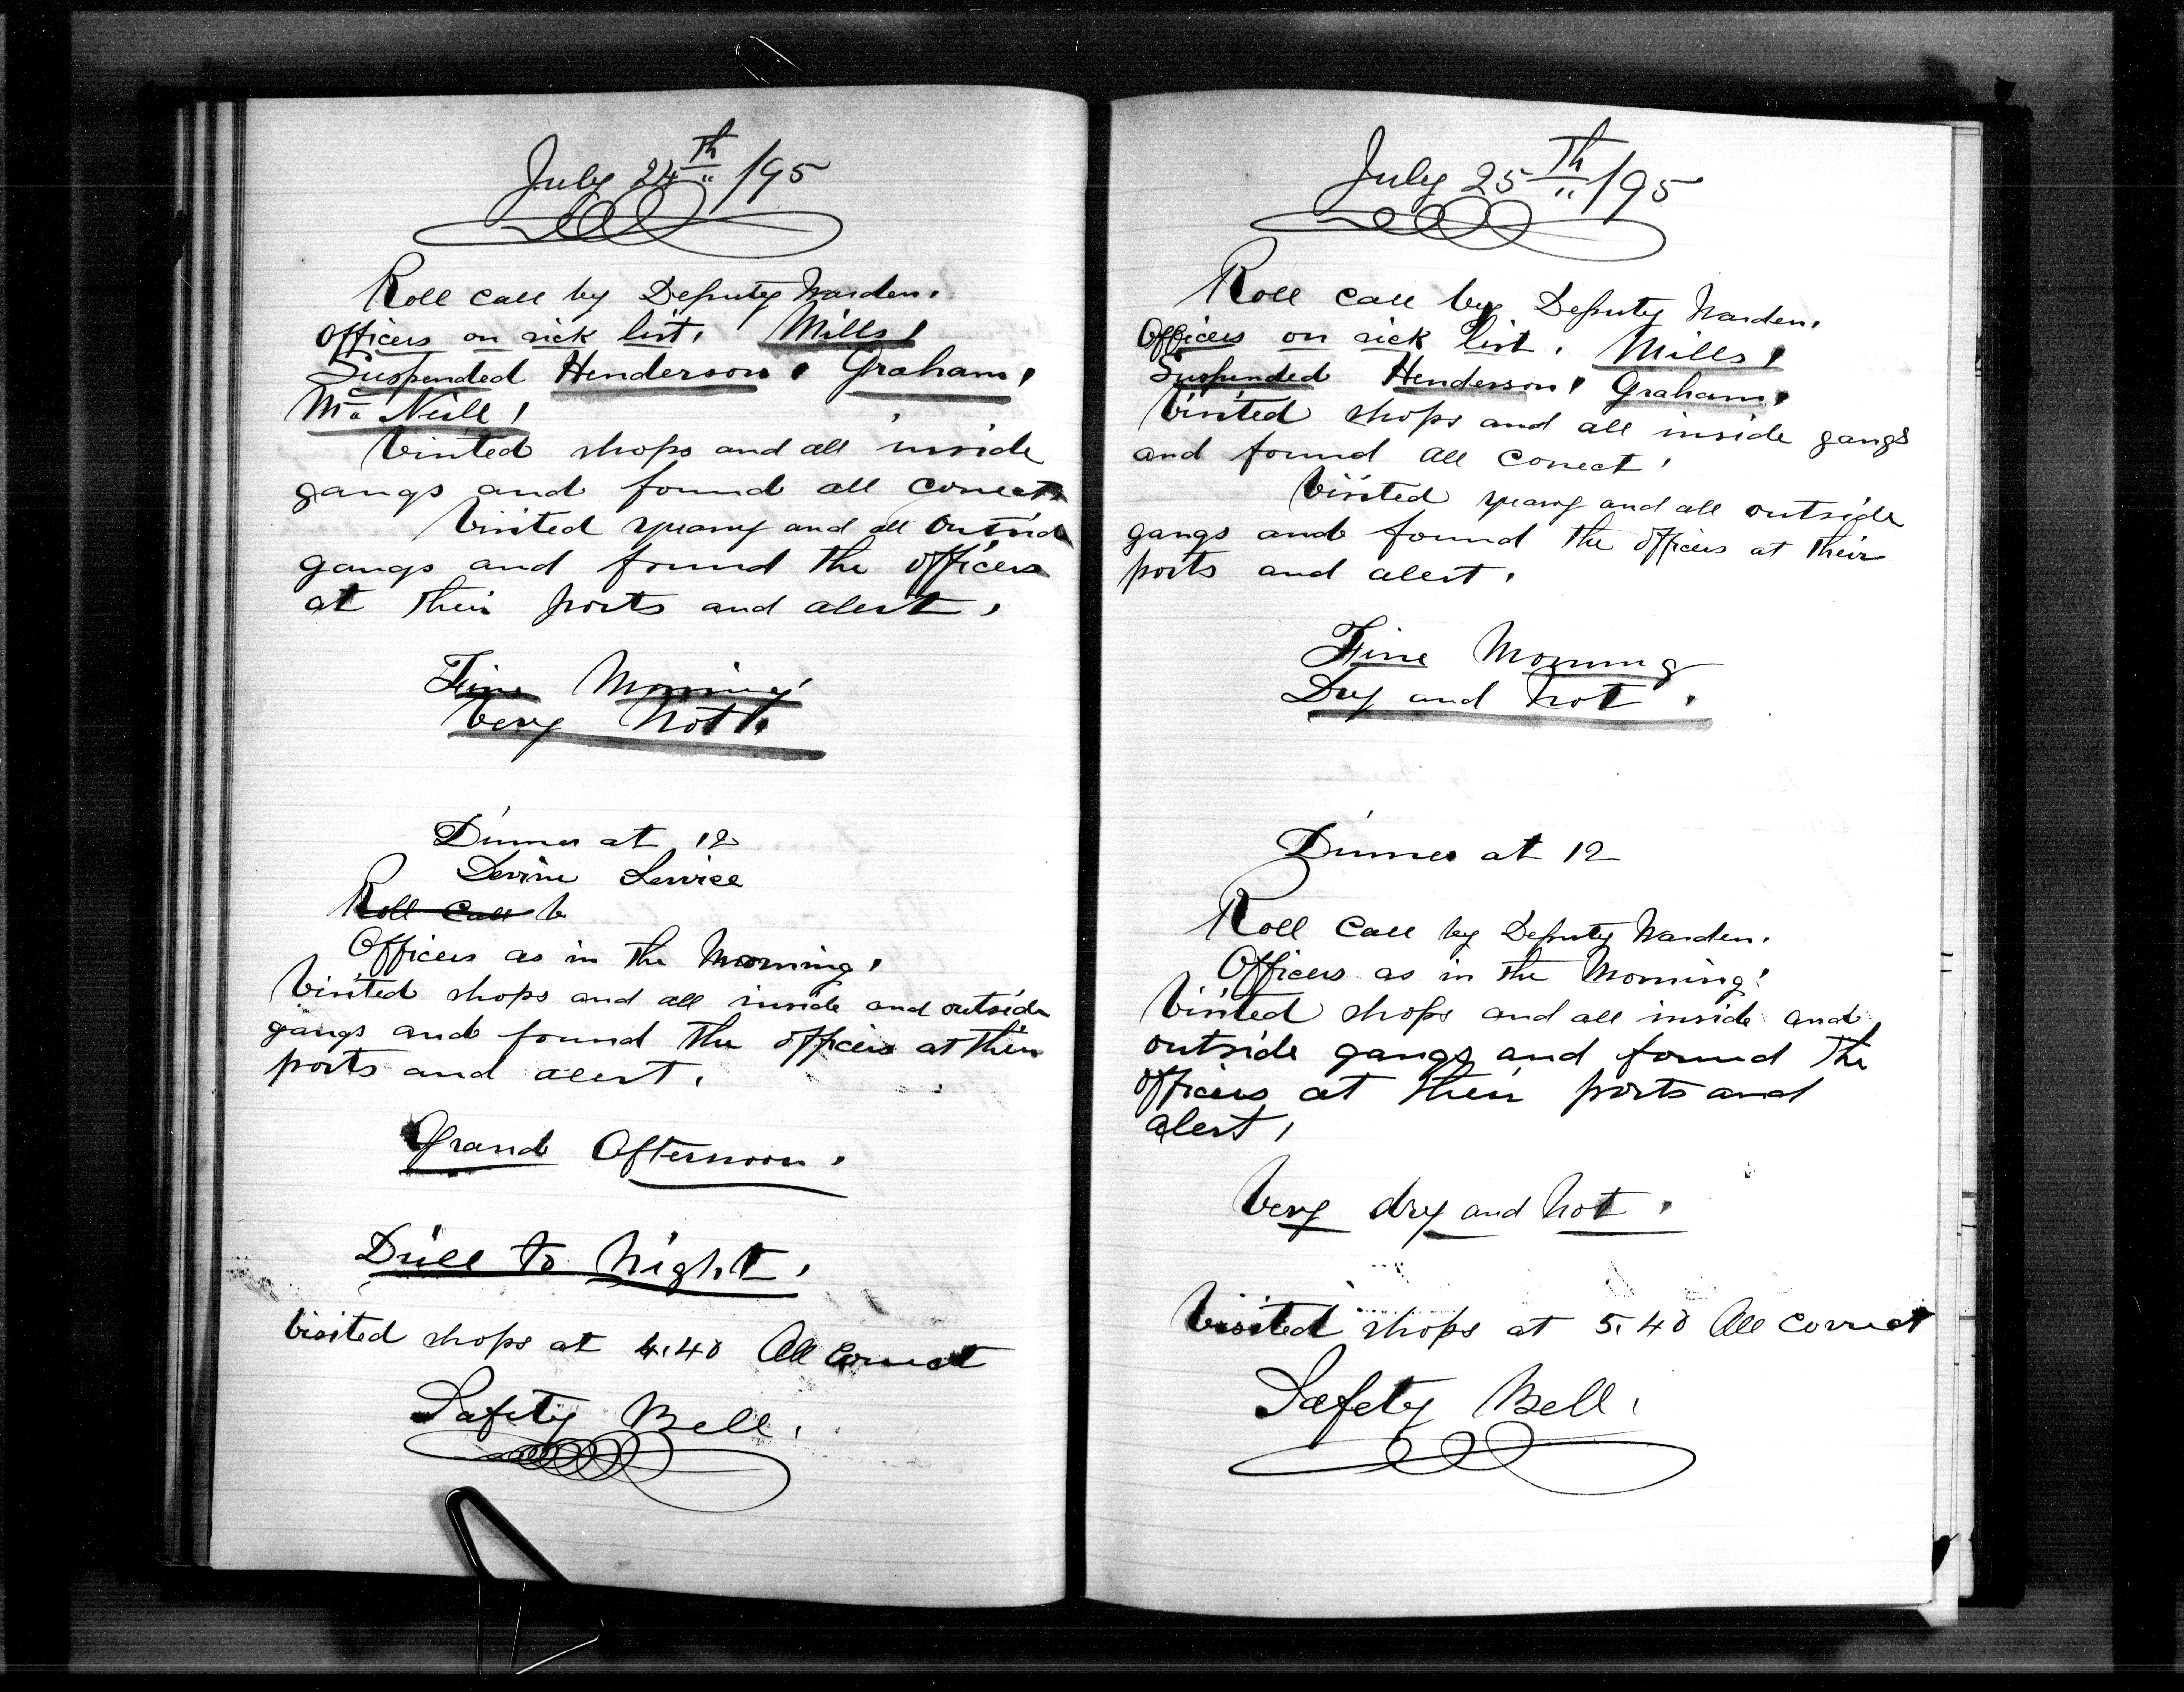 July 24th /95
Roll call by Deputy Warden.
Officers on sick list. Mills,
Suspended Henderson, Graham,
Mc Neill,
Visited shops and all inside
gangs and found all correct
Visited quarry and all outside
gangs and found the officers
at their posts and alert.
Fine Morning
Very Hot.
Dinner at 12
Devine Service
Roll Call b
Officers as in the Morning.
Visited shops and all inside and outside
gangs and found the officers at their
posts and alert.
Grand Afternoon.
Drill to Night.
Visited shops at 4.40 All Correct
Safety Bell.
July 25th /95
Roll call by Deputy Warden.
Officers on sick list. Mills,
Suspended Henderson, Graham,
Visited shops and all inside gangs
and found all correct.
Visited quarry and all outside
gangs and found the officers at their
posts and alert.
Fine Morning
Dry and hot.
Dinner at 12
Roll Call by Deputy Warden.
Officers as in the Morning.
Visited shops and all inside and
outside gangs and found the
officers at their posts and
alert.
Very dry and hot.
Visited shops at 5.40 All correct
Safety Bell.